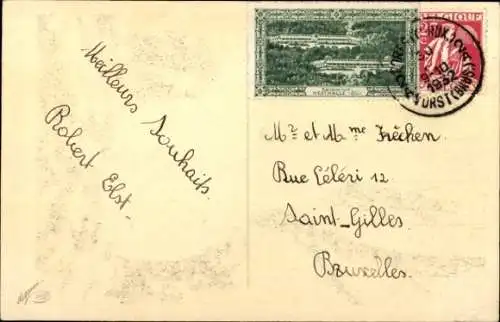 Meilleurs Souhaits.
Robert Elst.
BELGIQUE
1932
VORST (BRUS
Mr et Mme Frêchen.
Rue Céléri 12
Saint-Gilles
Bruxelles.